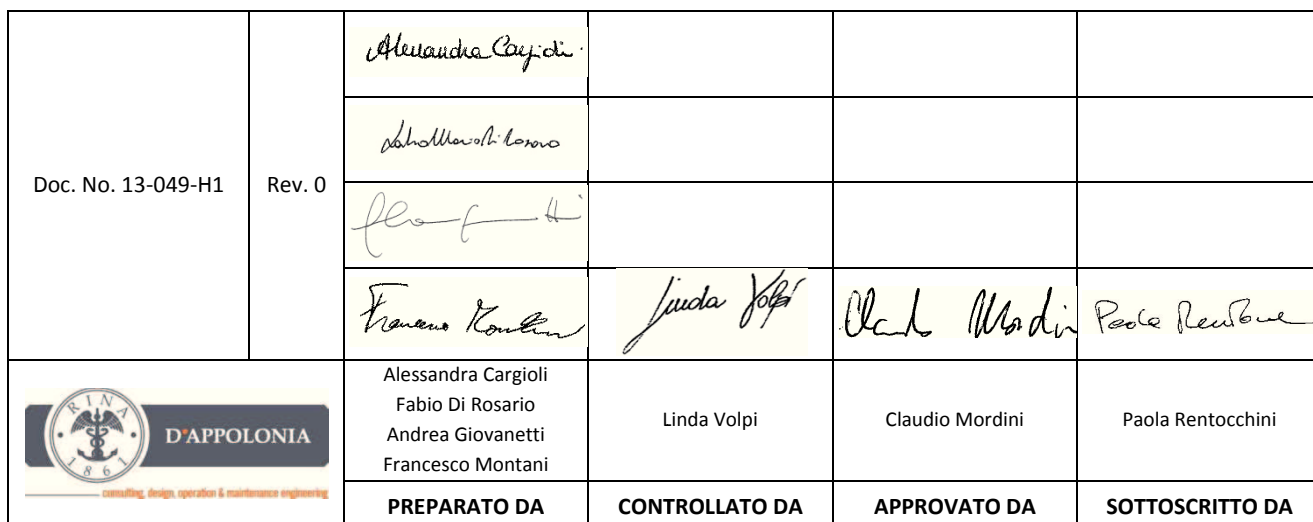 Alessandra Cargioli
Doc. No. 13-049-H1
Rev. 0
Linda Volpi
Claudio Mordini
Paola Rentocchini
RINA
1861
D'APPOLONIA
consulting, design, operation & maintenance engineering
Alessandra Cargioli
Fabio Di Rosario
Andrea Giovanetti
Francesco Montani
Linda Volpi
Claudio Mordini
Paola Rentocchini
PREPARATO DA
CONTROLLATO DA
APPROVATO DA
SOTTOSCRITTO DA